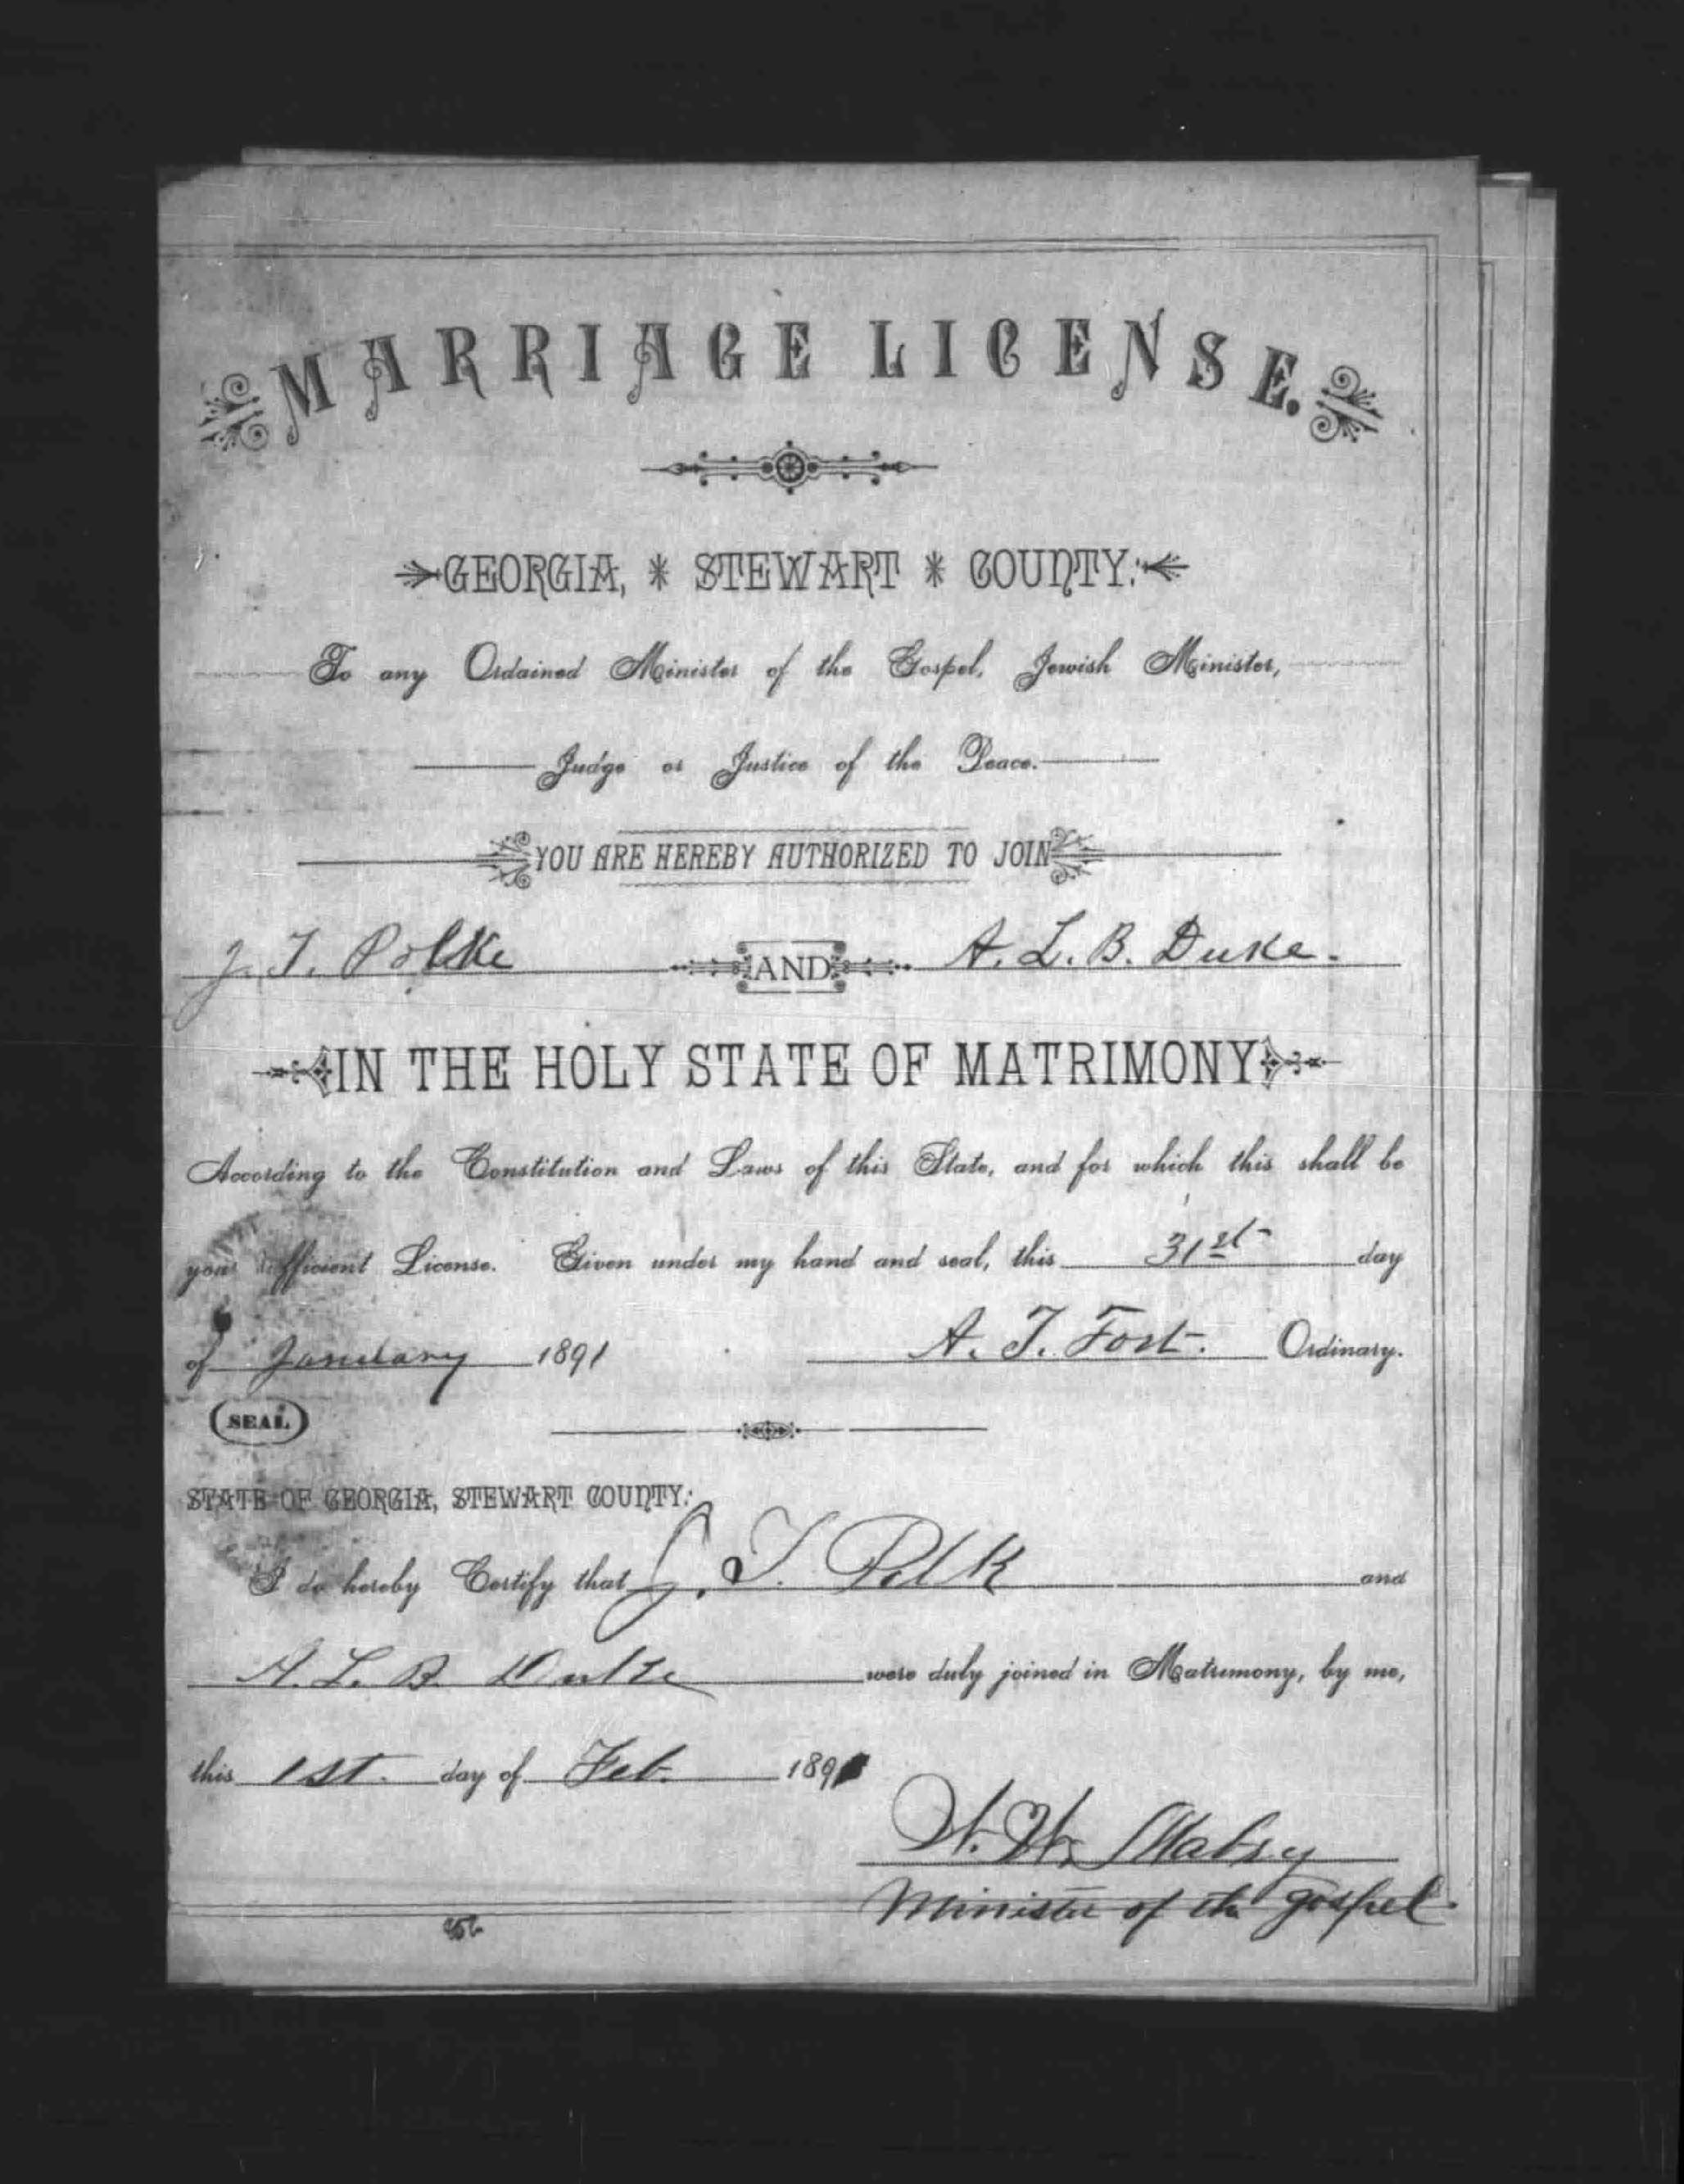 MARRIAGE LICENSE.
GEORGIA, * STEWART * COUNTY:
To any Ordained Minister of the Gospel, Jewish Minister,
Judge or Justice of the Peace.
YOU ARE HEREBY AUTHORIZED TO JOIN
J. T. Polke AND A. L. B. Duke.
IN THE HOLY STATE OF MATRIMONY
According to the Constitution and Laws of this State, and for which this shall be
your sufficient License. Given under my hand and seal, this 31st day
of January 1891 A. T. Fort. Ordinary.
SEAL
STATE OF GEORGIA, STEWART COUNTY:
I do hereby Certify that J. T. Polk and
A. L. B. Duke were duly joined in Matrimony, by me,
this 1st. day of Feb. 1891
Mabry
Minister of the gospel.